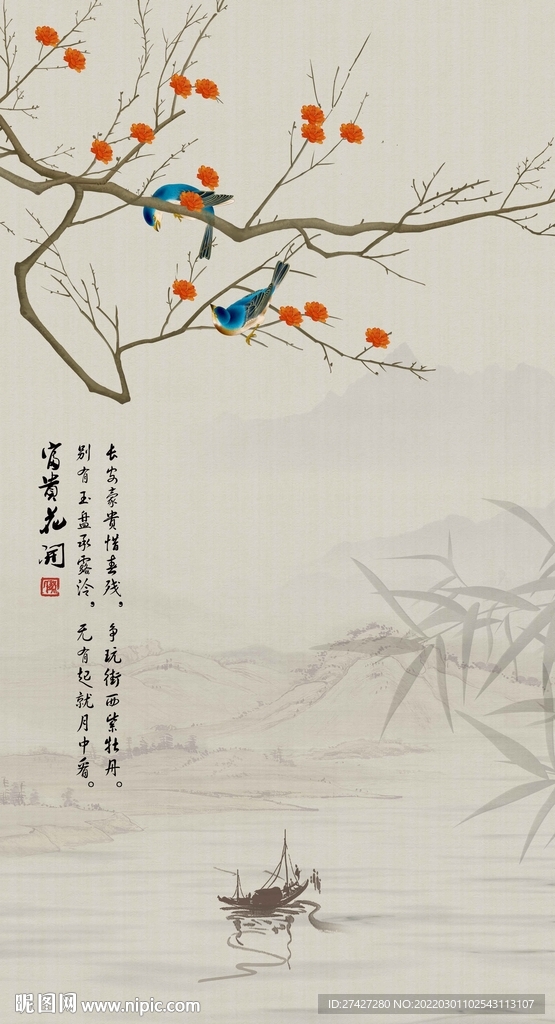 长安豪贵惜春残，争玩街西紫牡丹。
别有玉盘承露冷，无有起就月中看。
富貴花開
昵图网 www.nipic.com
ID:27427280 NO:20220301102543113107